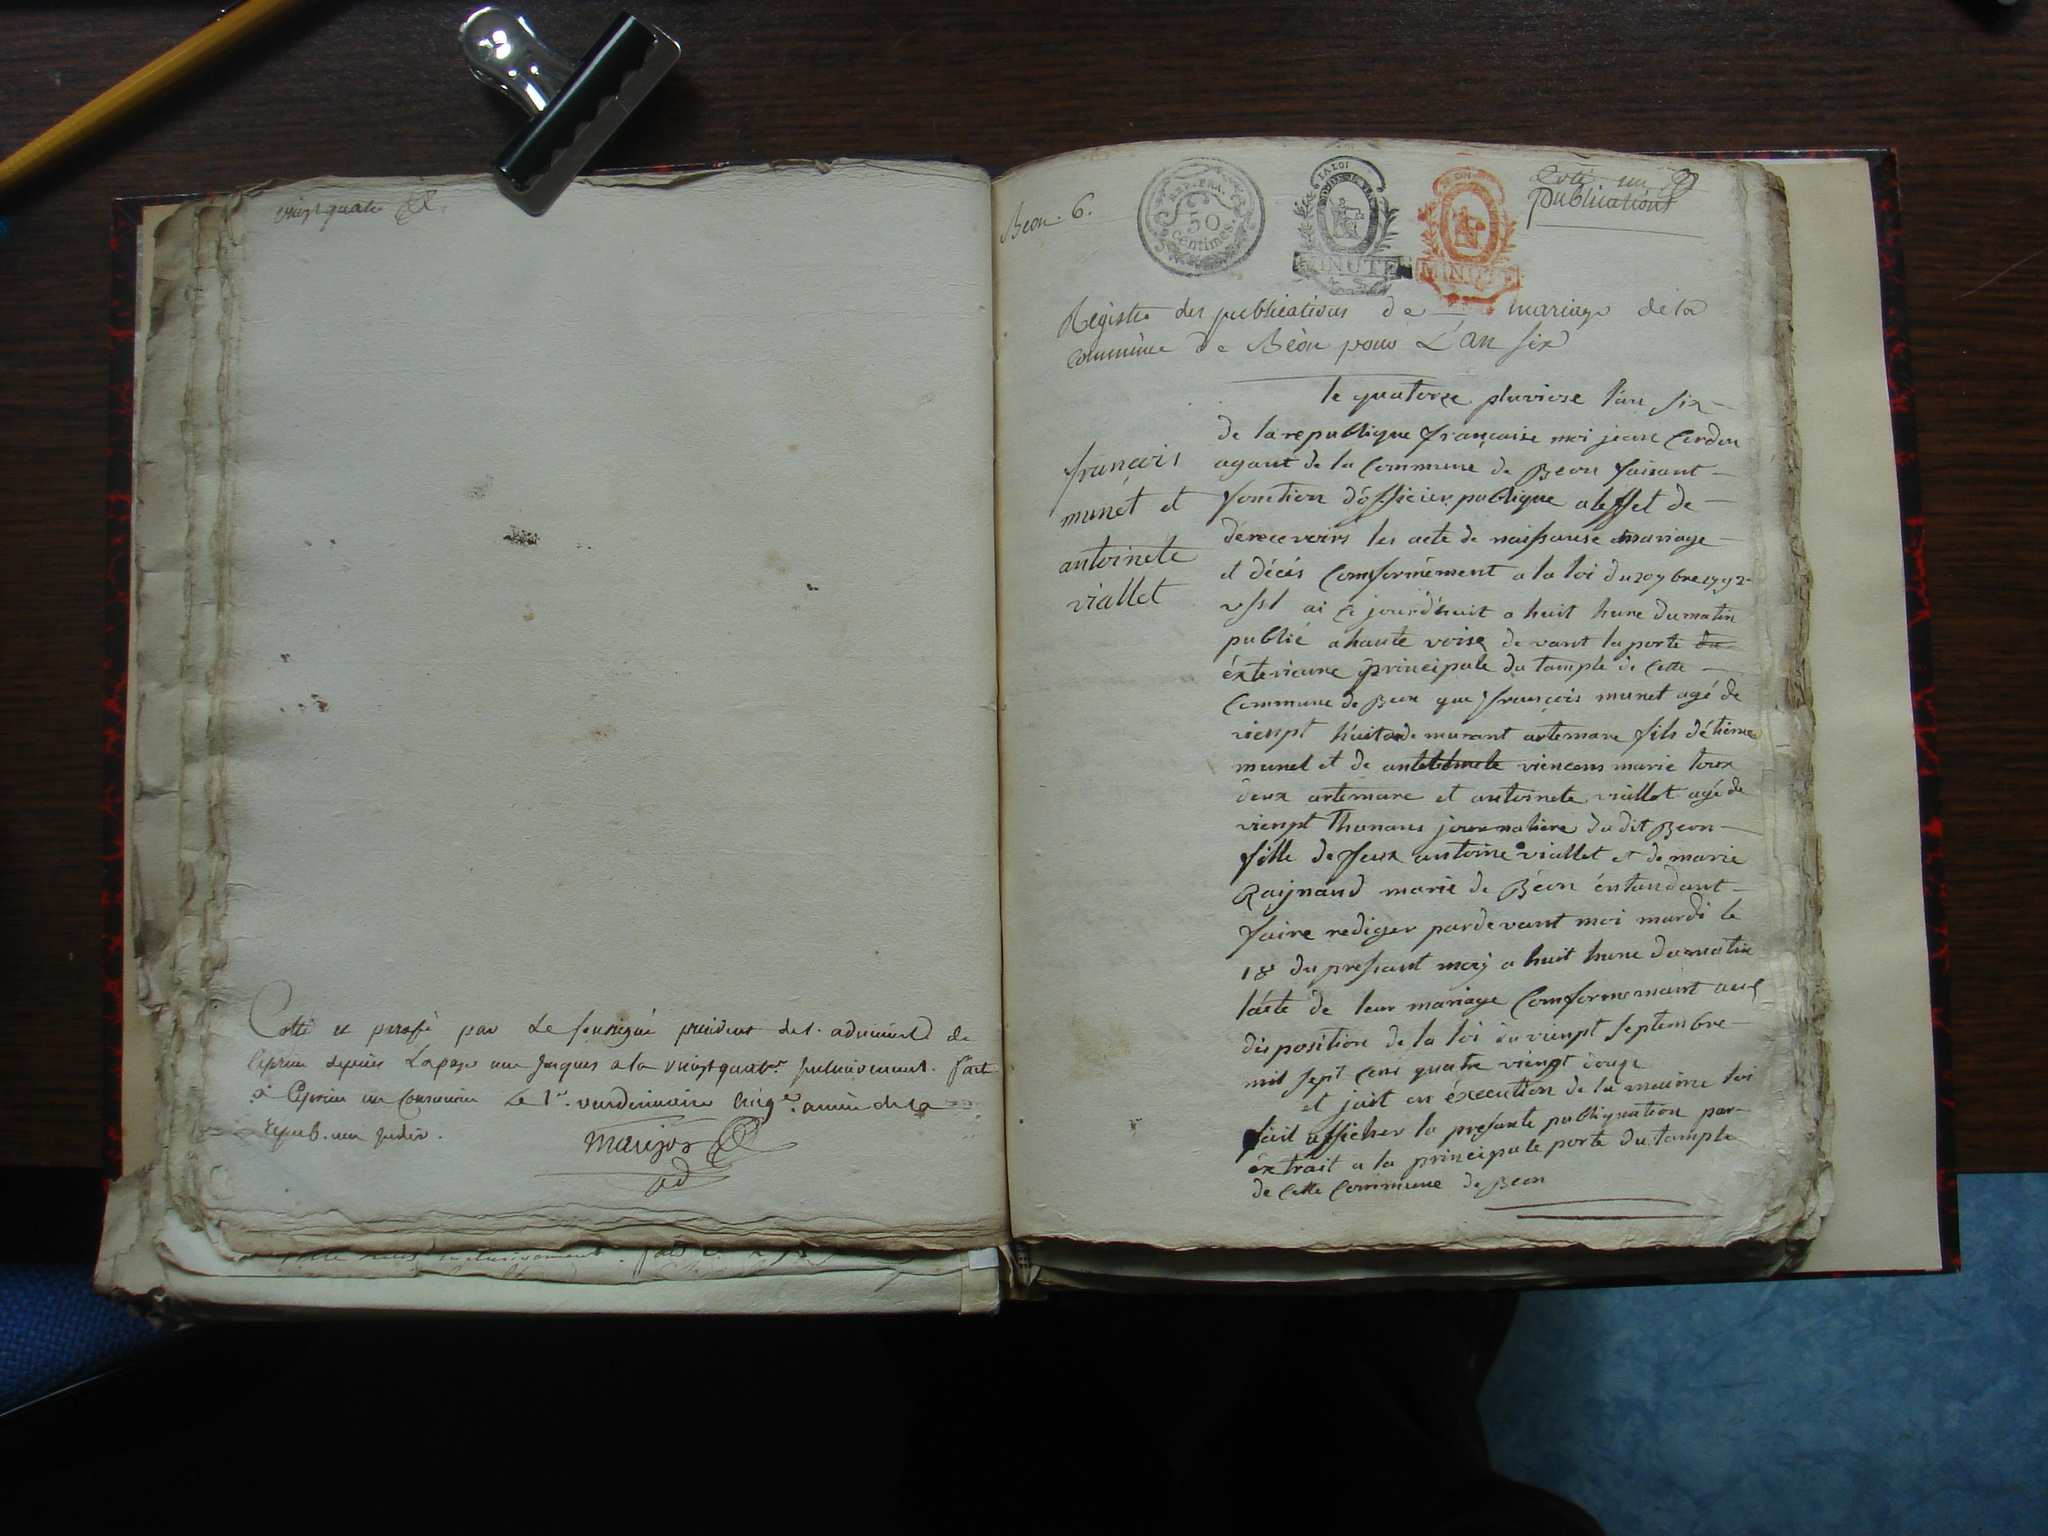 vingt quatre
Cotté et parafé par le soussigné président de l'. administ. de
Ceyzrieu depuis la page une jusques a la vingt quatr. inclusivement. fait
à Ceyzrieu en Commune le 1er. vendemiaire cinq e. année de la
Repub. une indiv.
Maujos
Beon. 6.
REP. FRA.
50
Centimes.
LA LOI
MINUTE
MINUTE
Coté un
publications
Registre des publications de mariage de la
Commune de Béon pour L'an six
françois
munét et
antoinete
viallet
le quatorze pluviose l'an six
de la republique française moi jean Cerdon
agant de la Commune de Beon faisant
fonction d'officier publique a leffet de
derecevoirs les acte de naissanse mariage
et décés Comformément a la loi du 20 7bre 1792
vsst ai ce jourd'huit a huit hure du matin
publié a haute voise de vant la porte du
éxterieure principale du tample de Cette
Commune de Beon que françois munet agé de
vienpt huit de murant artemare fils détiene
munet et de viencens marie tous
deux artemare et antoinete viallet agé de
vienpt Thonanes journaliere du dit Beon
fille de feux antoine viallet et de marie
Raÿnaud marié de Béon éntandant
faire rediger pardevant moi mardi le
18 du pressant moij a huit hure du matin
lácte de leur mariage Comformemaint aux
disposition de la loi du vienpt septembre
mil sept cens quatre vienpt douze
et jait en éxecution de la maime loi
fait afficher la presante publiquation par
éxtrait a la principale porte du tample
de Cette Commune de Beon